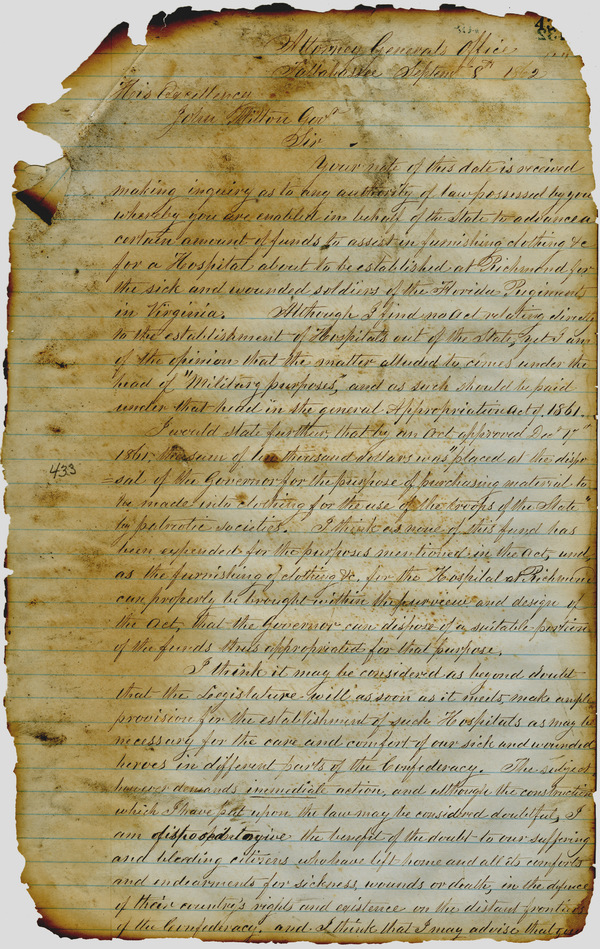 Attorney Generals Office
Tallahassee Septem 8th 1862
His Excellency
John Milton Govr
Sir
Your note of this date is received
making inquiry as to any authority of law possessed by you
whereby you are enabled in behalf of the State to advance a
certain amount of funds to assist in furnishing clothing &c
for a Hospital about to be established at Richmond for
the sick and wounded soldiers of the Florida Regiments
in Virginia. Although I find no act relating direc
to the establishment of Hospitals out of the state, yet I am
of the opinion that the matter alluded to comes under the
head of "Military purposes", and as such should be paid
under that head in the general Appropriation Act of 1861.
I would state further, that by an Act approved Decr
1861, the sum of ten thousand dollars was "placed at the dispo
433
=sal of the Governor for the purpose of purchasing material to
be made into clothing for the use of the troops of the State"
by patriotic societies. I think as none of this fund has
been expended for the purposes mentioned in the Act, and
as the furnishing of clothing &c. for the Hospital at Richmond
can properly be brought within the purview and design of
the Act, that the Governor can dispose of a suitable portion
of the funds thus appropriated for that purpose.
I think it may be considered as beyond doubt
that the Legislature will as soon as it meets, make ample
provision for the establishment of such Hospitals as may be
necessary for the care and comfort of our sick and wounded
heroes in different parts of the Confederacy. The subject
however demands immediate action, and although the construction
which I have put upon the law may be considered doubtful, I
am disposed to give the benefit of the doubt to our suffering
and bleeding citizens who have left home and all its comforts
and endearments for sickness, wounds or death, in the defence
of their country's rights and existence on the distant frontiers
of the Confederacy. and I think that I may advise that